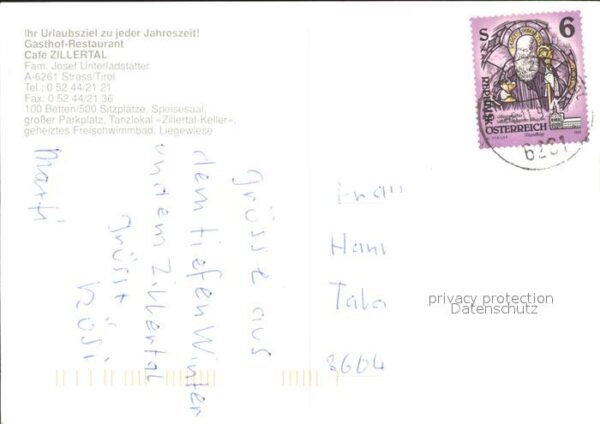 Ihr Urlaubsziel zu jeder Jahreszeit!
Gasthof-Restaurant
Café ZILLERTAL
Fam. Josef Unterladstätter
A-6261 Strass/Tirol
Tel.: 0 52 44/21 21
Fax: 0 52 44/21 36
100 Betten/500 Sitzplätze, Speisesaal,
großer Parkplatz, Tanzlokal »Zillertal-Keller«,
geheiztes Freischwimmbad, Liegewiese
Grüsse aus
dem tiefen Winter
und em Zillertal
grüsst
Rösi
Marti
S 6
REPUBLIK
ÖSTERREICH
6261
Frau
Hani
8604
privacy protection
Datenschutz